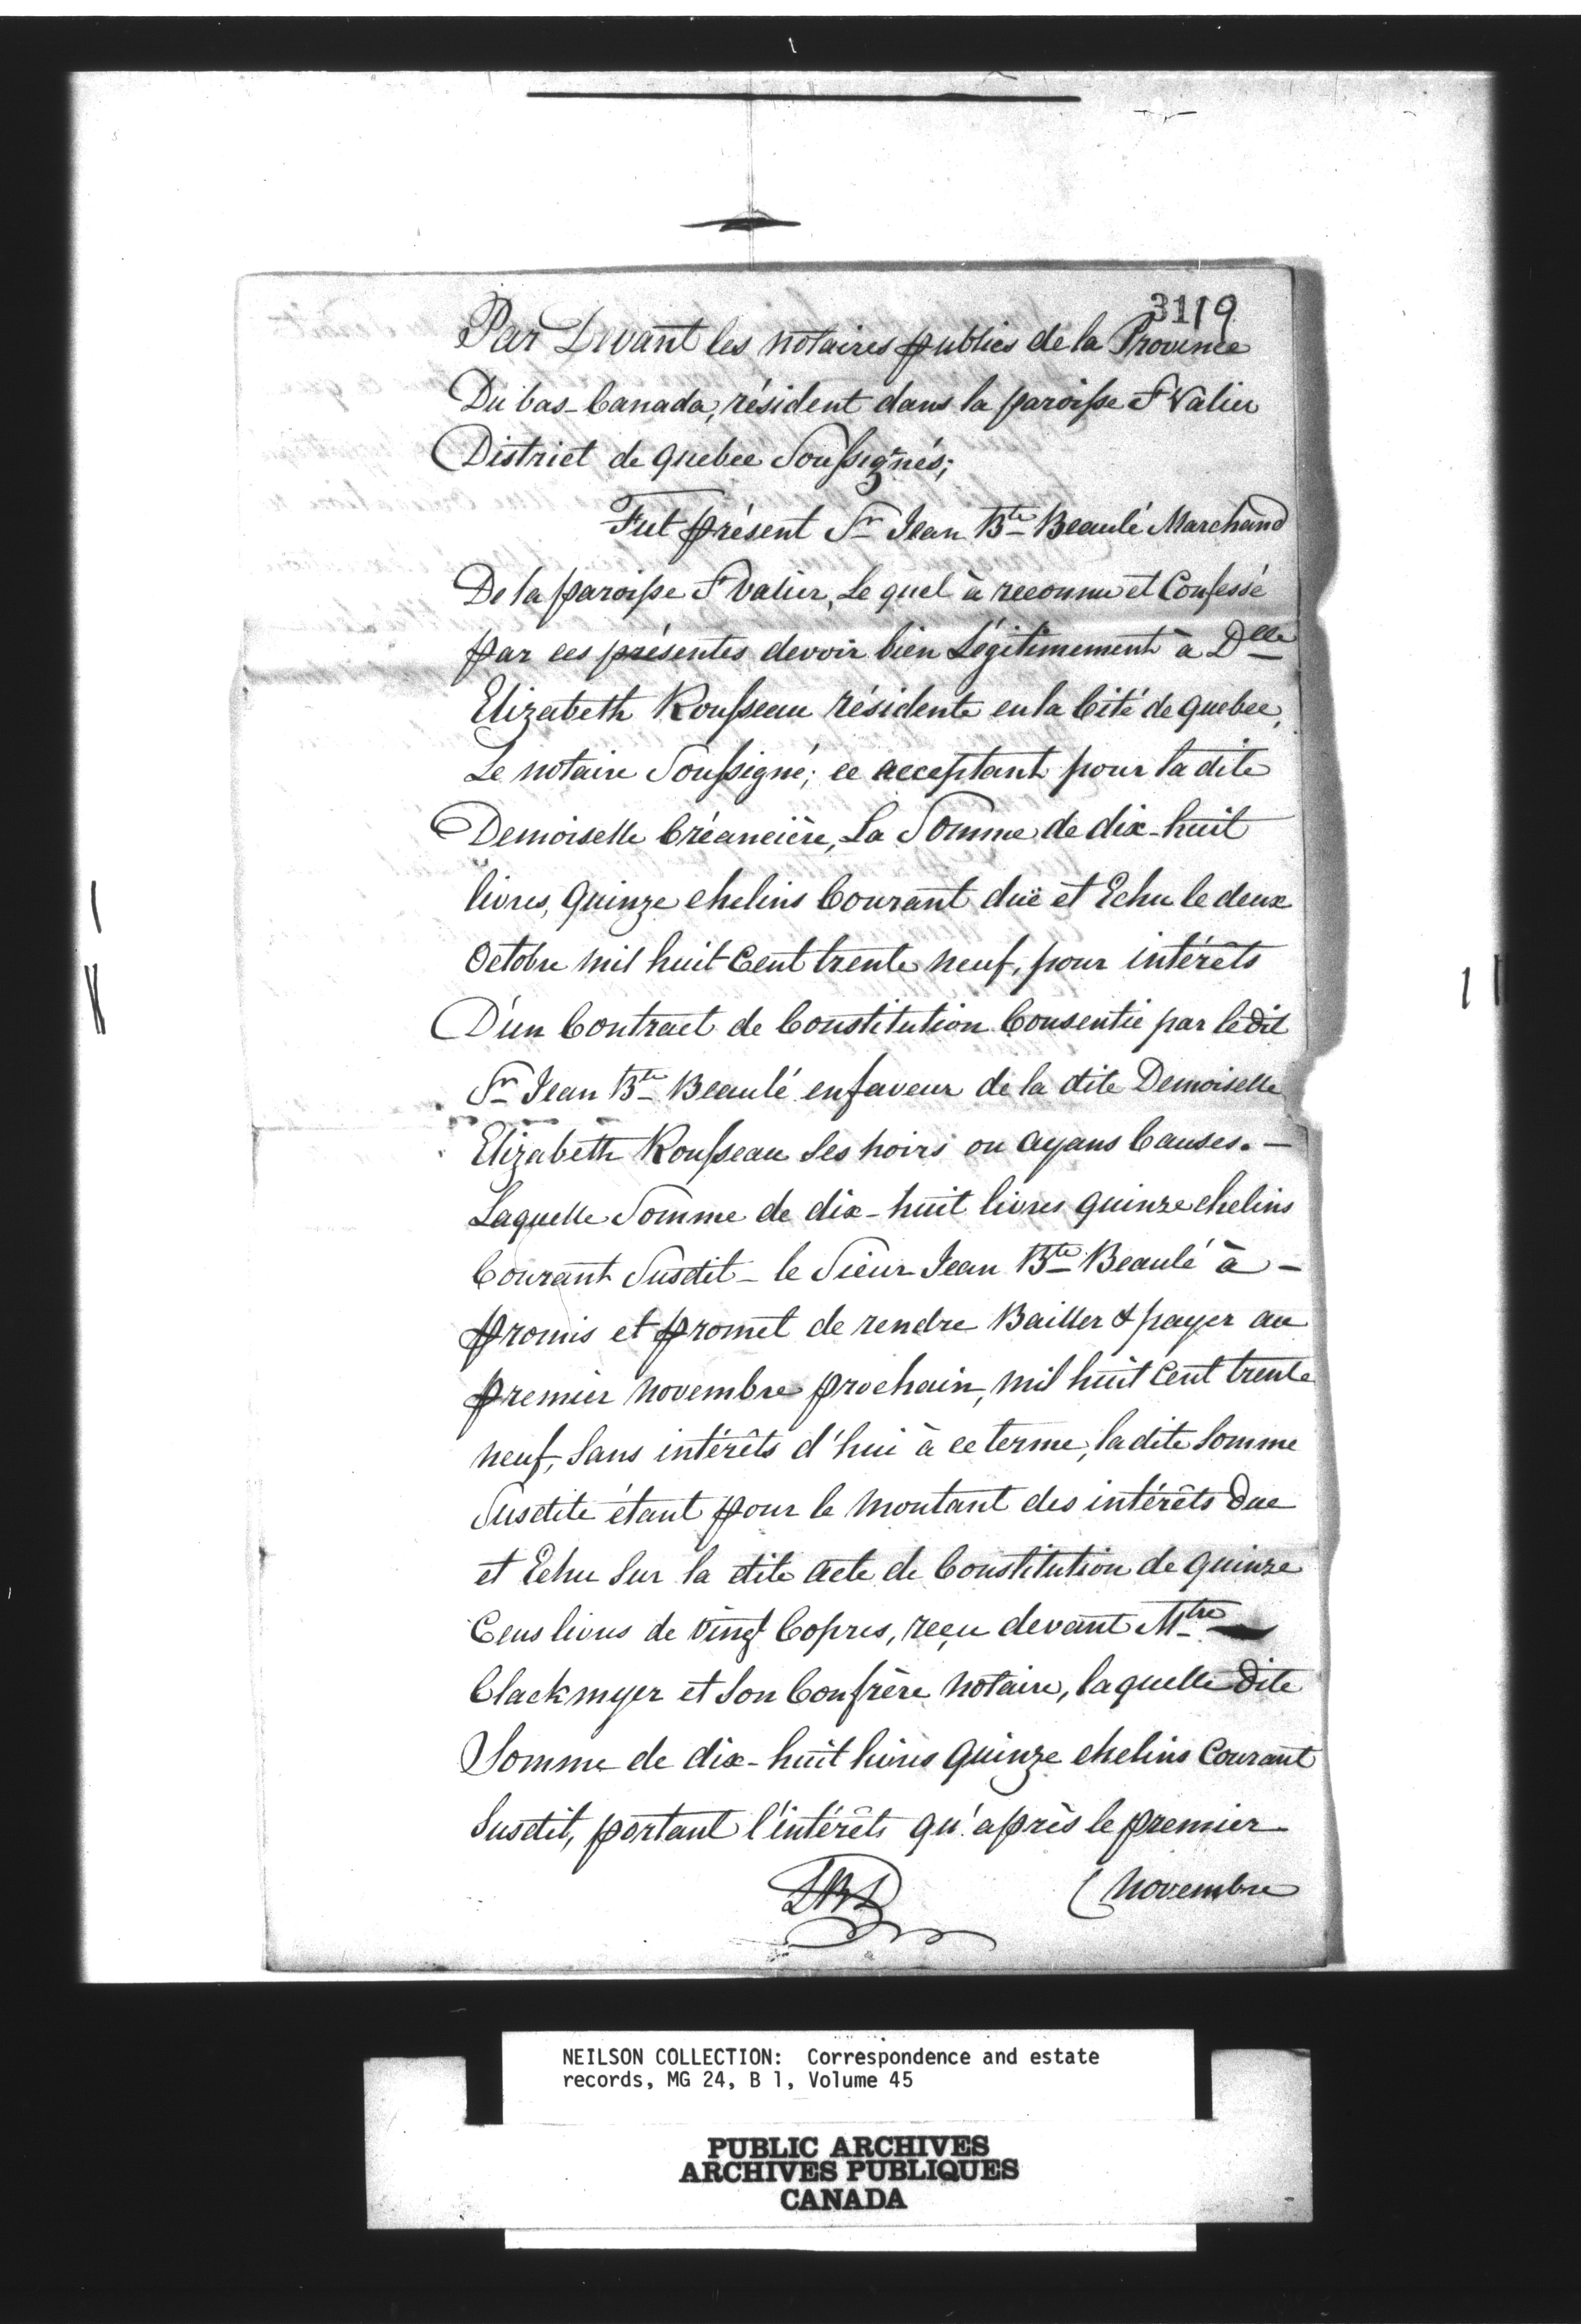 3119
Par Devant les notaires publics de la Province
Du bas-Canada, résident dans la paroisse St Valier
District de quebec Soussignés;
Fut présent Sr Jean Bte Beaulé Marchand
De la paroisse St Valier, Le quel à reconnu et Confessé
par ces présentes devoir bien Légitimement à Delle
Elizabeth Rousseau résidente en la Cité de quebec,
Le notaire Soussigné; ce acceptant pour la dite
Demoiselle Créancière, La Somme de dix-huit
livres, quinze chelins Courant duë et Echu le deux
Octobre mil huit Cent trente neuf, pour intérêts
D'un Contract de Constitution Consentie par le dit
Sr Jean Bte Beaulé en faveur de la dite Demoiselle
Elizabeth Rousseau Ses hoirs ou ayans Causes. —
Laquelle Somme de dix-huit livres quinze chelins
Courant Susdit - le Sieur Jean Bte Beaulé à -
promis et promet de rendre Bailler & payer au
premier novembre prochain, mil huit Cent trente
neuf, Sans intérêts d'hui à ce terme, la dite Somme
Susdite étant pour le montant des intérêts Due
et Echu Sur la dite acte de Constitution de quinze
Cens livres de vingt Coprs, reçu devant Mtre
Clackmyer et Son Confrère notaire, laquelle dite
Somme de dix-huit livres quinze chelins Courant
Susdit, portant l'intérêts qu'après le premier
(novembre
NEILSON COLLECTION: Correspondence and estate
records, MG 24, B 1, Volume 45
PUBLIC ARCHIVES
ARCHIVES PUBLIQUES
CANADA